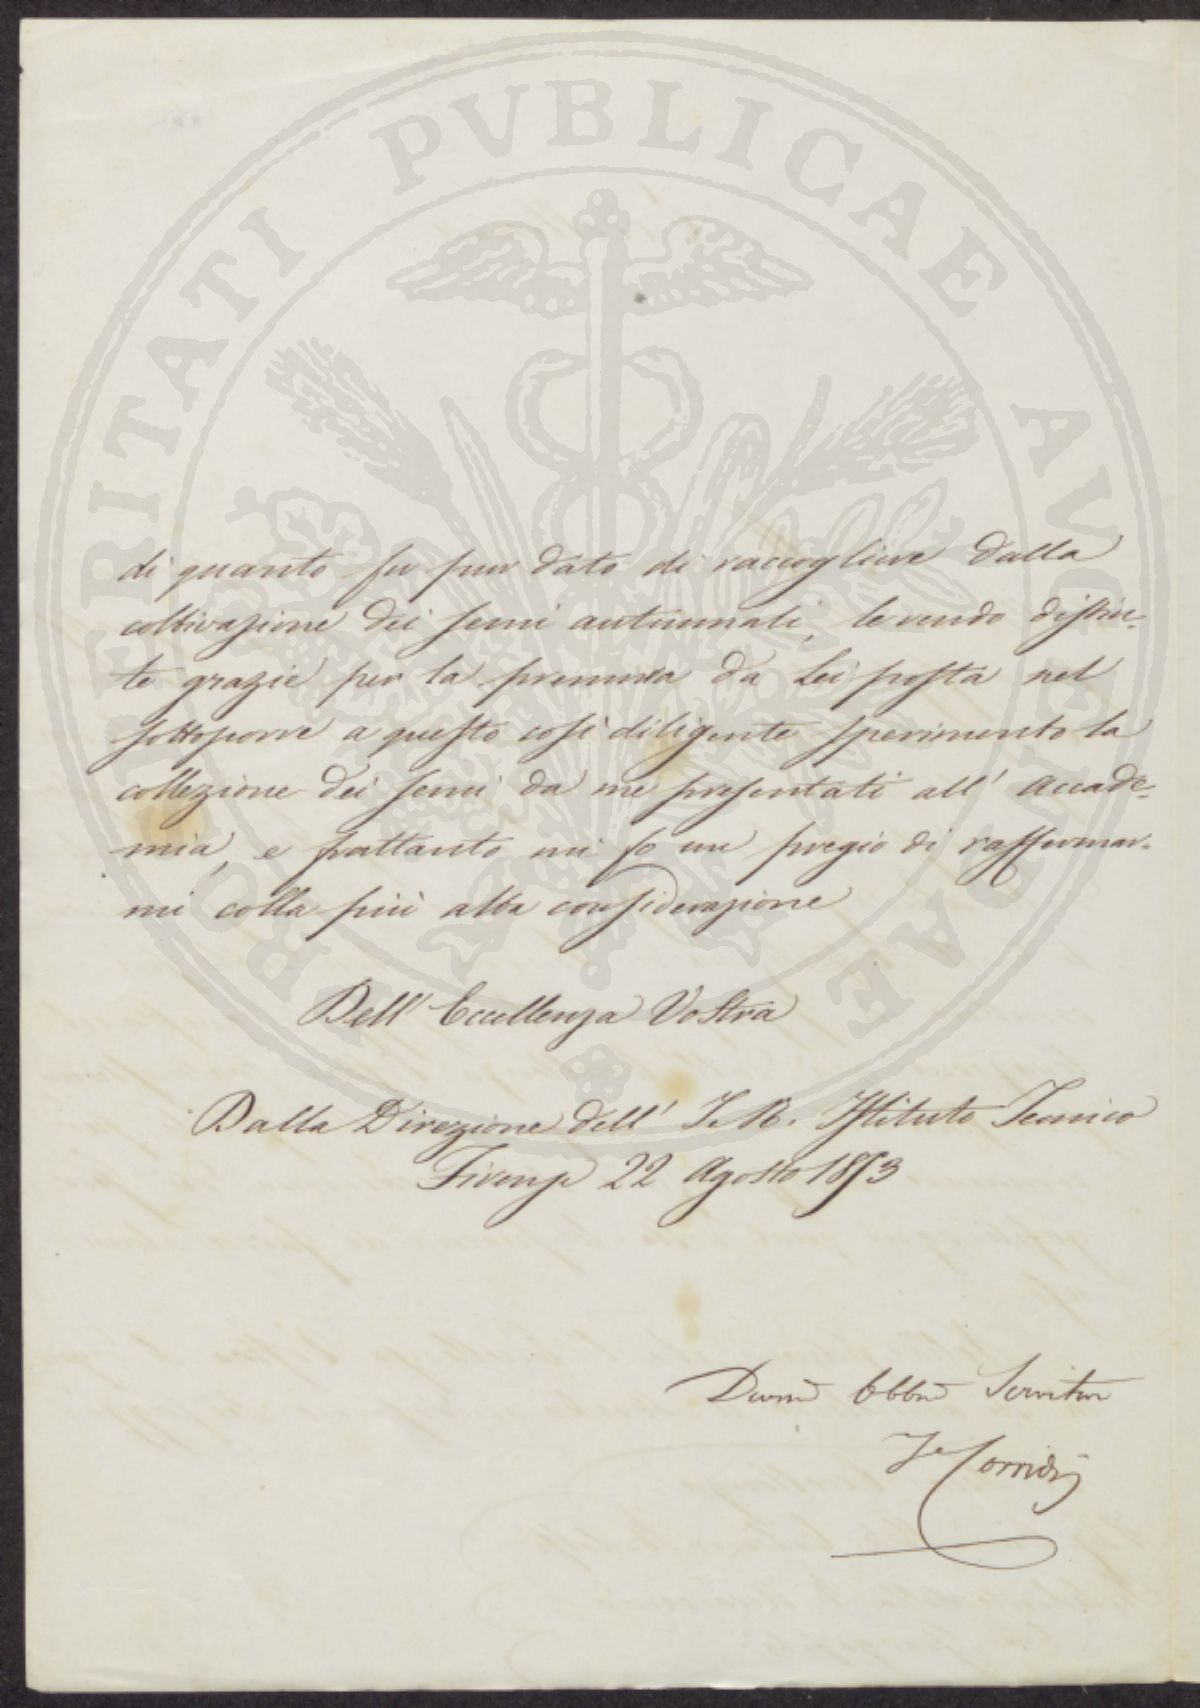 PROSPERITATI PVBLICAE AVGENDAE
di quanto fu pur dato di raccogliere dalla
coltivazione dei semi autunnali, le rendo distin-
te grazie per la premura da Lei posta nel
sottoporre a questo così diligente sperimento la
collezione dei semi da me presentati all' Accade-
mia, e frattanto mi fo un pregio di raffermar-
mi colla più alta considerazione
Dell' Eccellenza Vostra
Dalla Direzione dell' I. R. Istituto Tecnico
Firenze 22 Agosto 1853
Devmo Obbmo Servitore
F. Corridi